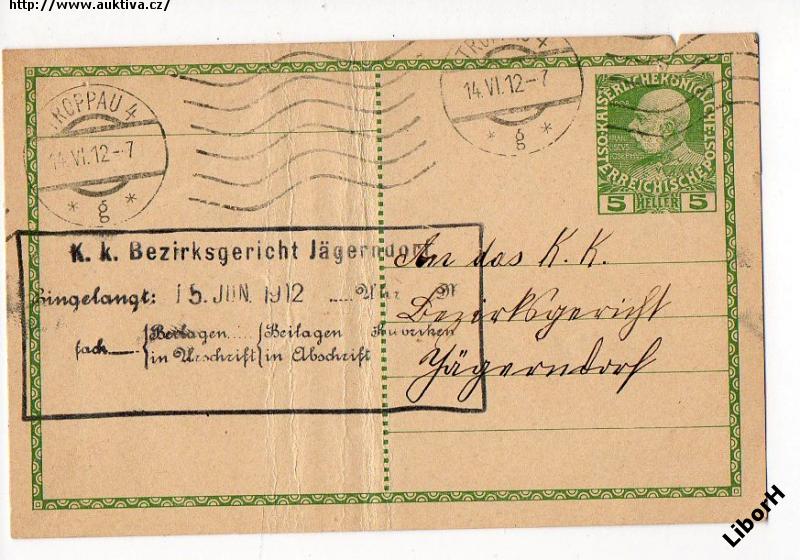 http://www.auktiva.cz/
TROPPAU 4
14.VI.12-7
* g *
TROPPAU 4
14.VI.12-7
* g *
5 HELLER 5
K. k. Bezirksgericht Jägerndorf
Eingelangt: 15. JUN. 1912 ..... Uhr M
fach {Beilagen..... {Beilagen Rubriken
in Urschrift in Abschrift
An das K. K.
Bezirksgericht
Jägerndorf
LiborH